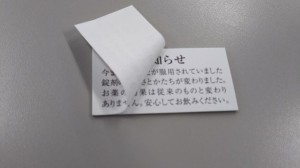 らせ
今 が服用されていました
錠剤 とかたちが変わりました。
お薬の 果は従来のものと変わり
ありません。安心してお飲みください。